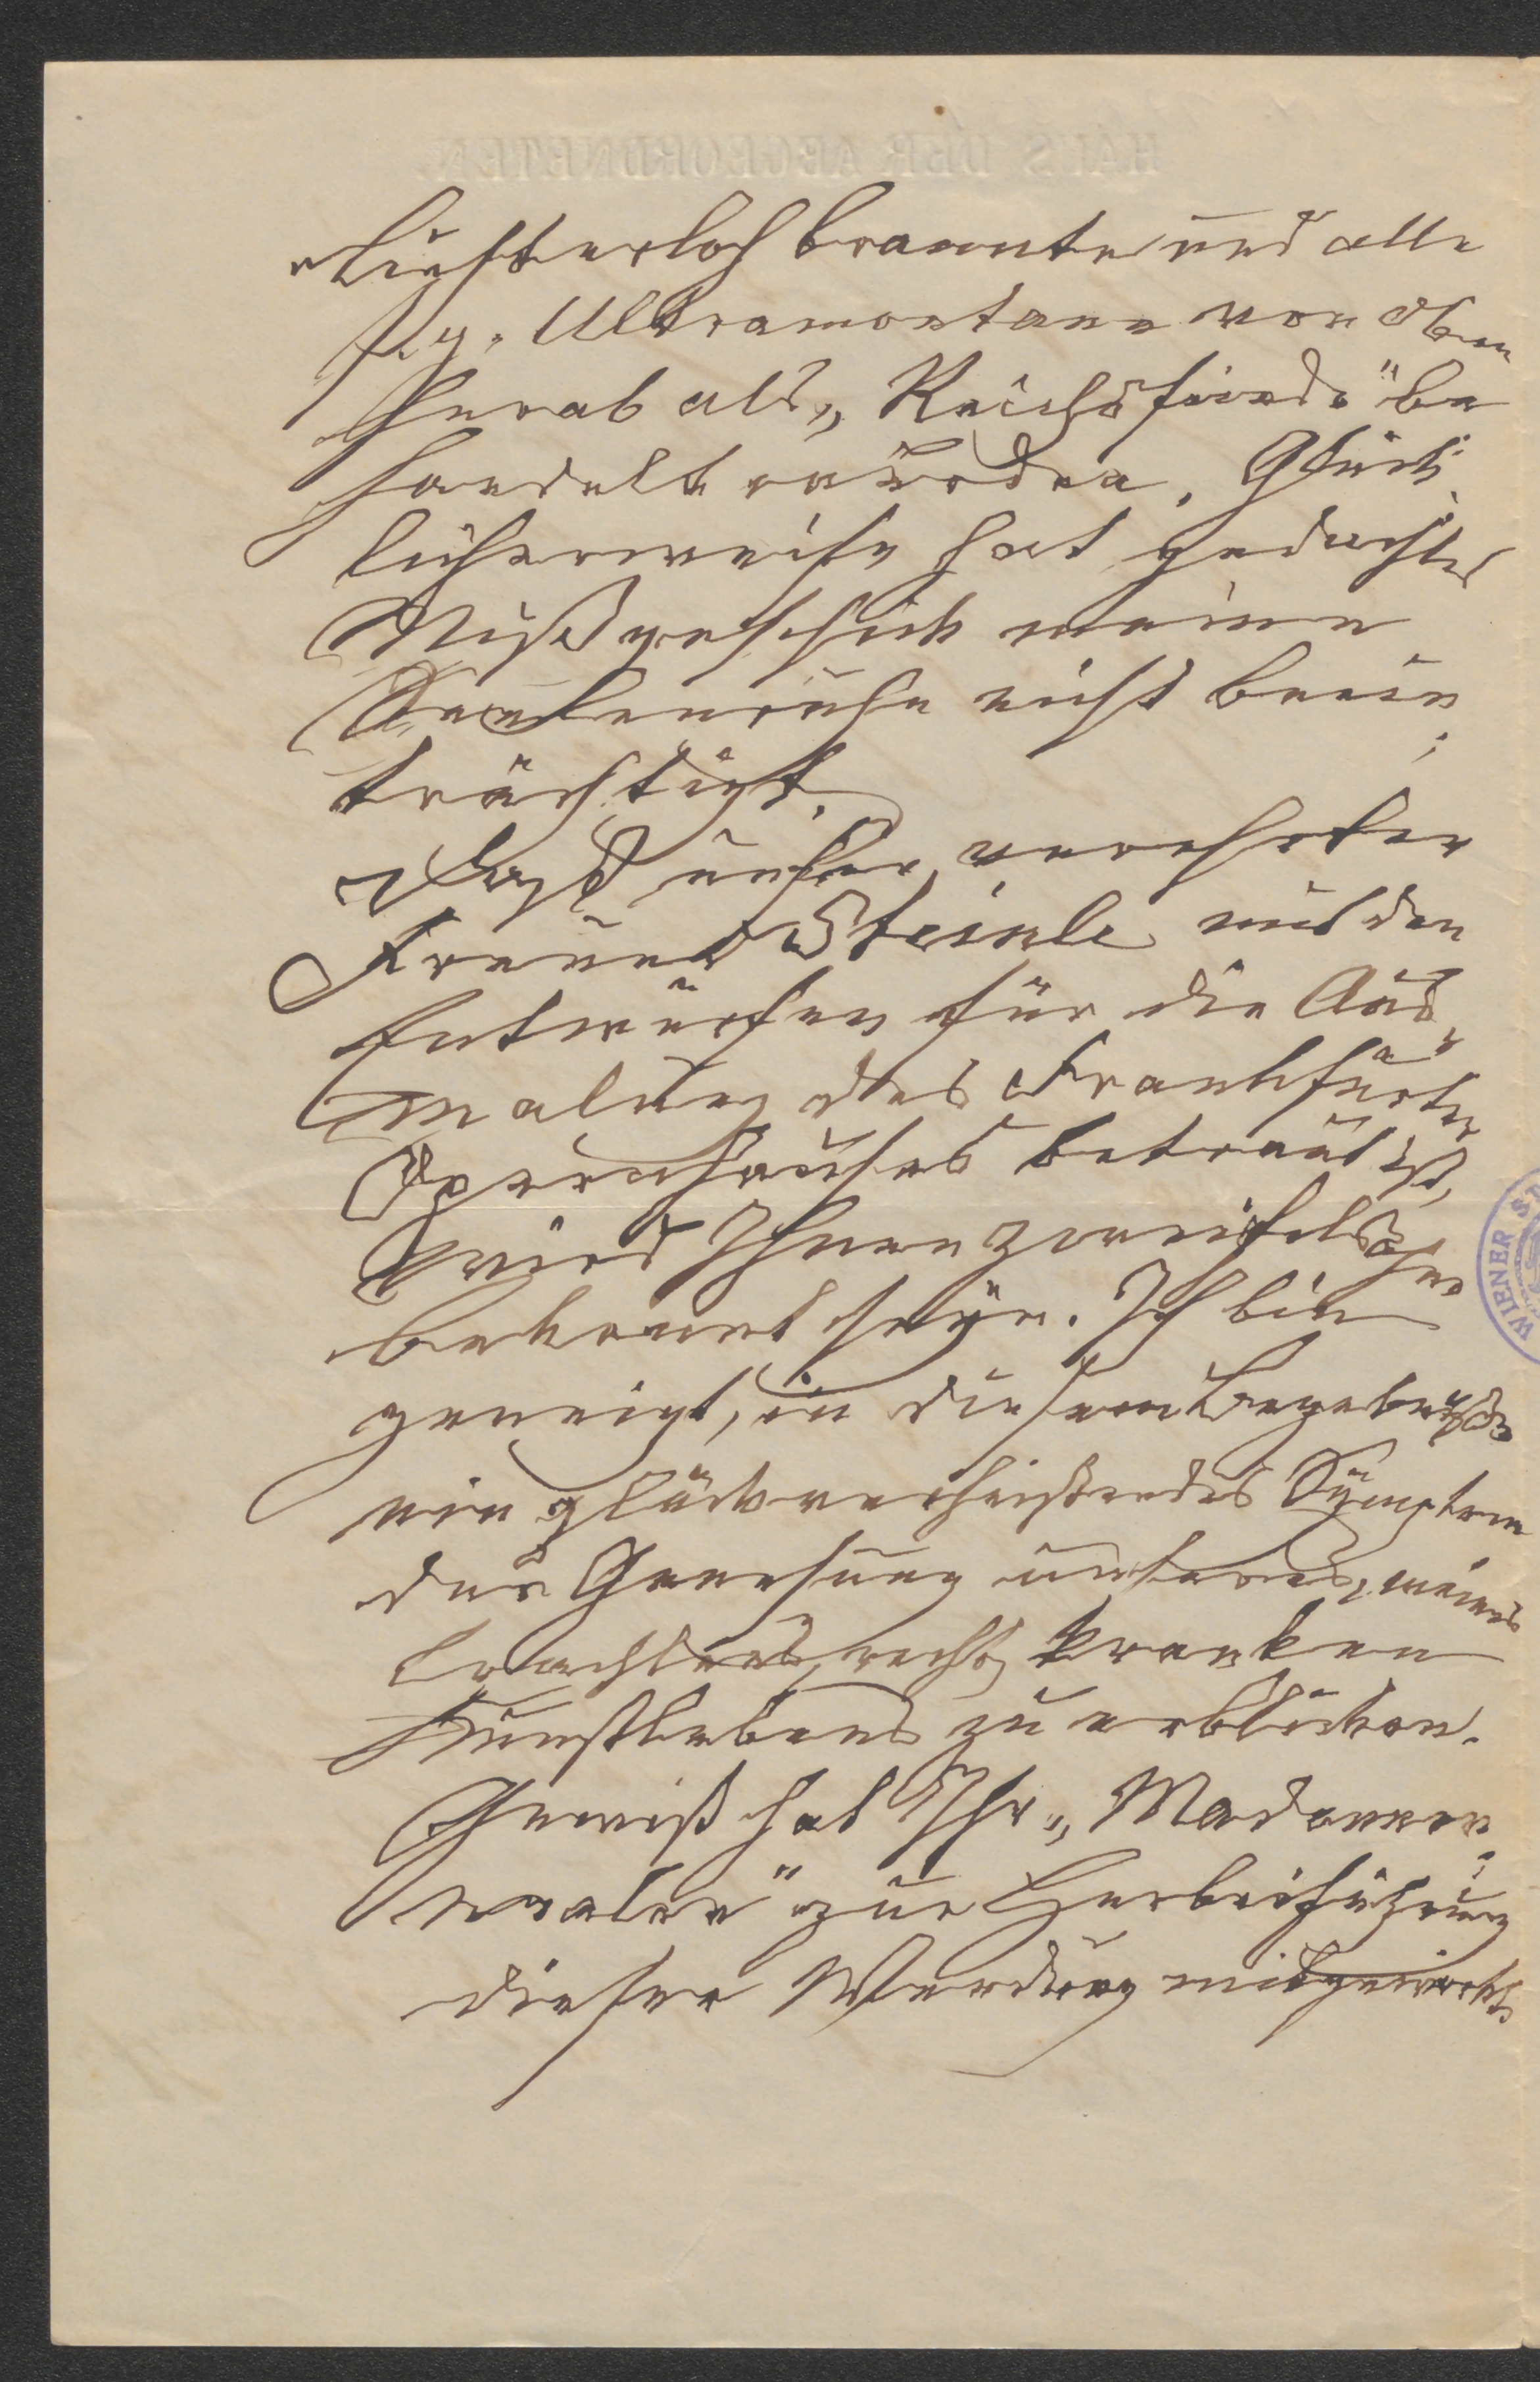 HAUS DER ABGEORDNETEN.
lichterloh brannte und alle
s. g. Ultramontane von oben
herab als „Reichsfeinde" be
handelt wurden. Glück
licherweise hat gedachtes
Mißgeschick meine
Seelenruhe nicht beein
trächtigt.
Daß unser verehrter
Freund Steinle mit den
Entwürfen für die Aus
malung des Frankfurter
Opernhauses betraut ist,
wird Ihnen zweifelsohne
bekannt seyn. Ich bin
geneigt, in diesem
ein glückverheißendes Symptom
der Genesung unseres, meines
Erachtens, recht kranken
Kunstlebens zu erblicken.
Gewiß hat Ihr „Madonnen
maler" zur Herbeiführung
dieser Wendung mitgewirkt.
WIENER ST